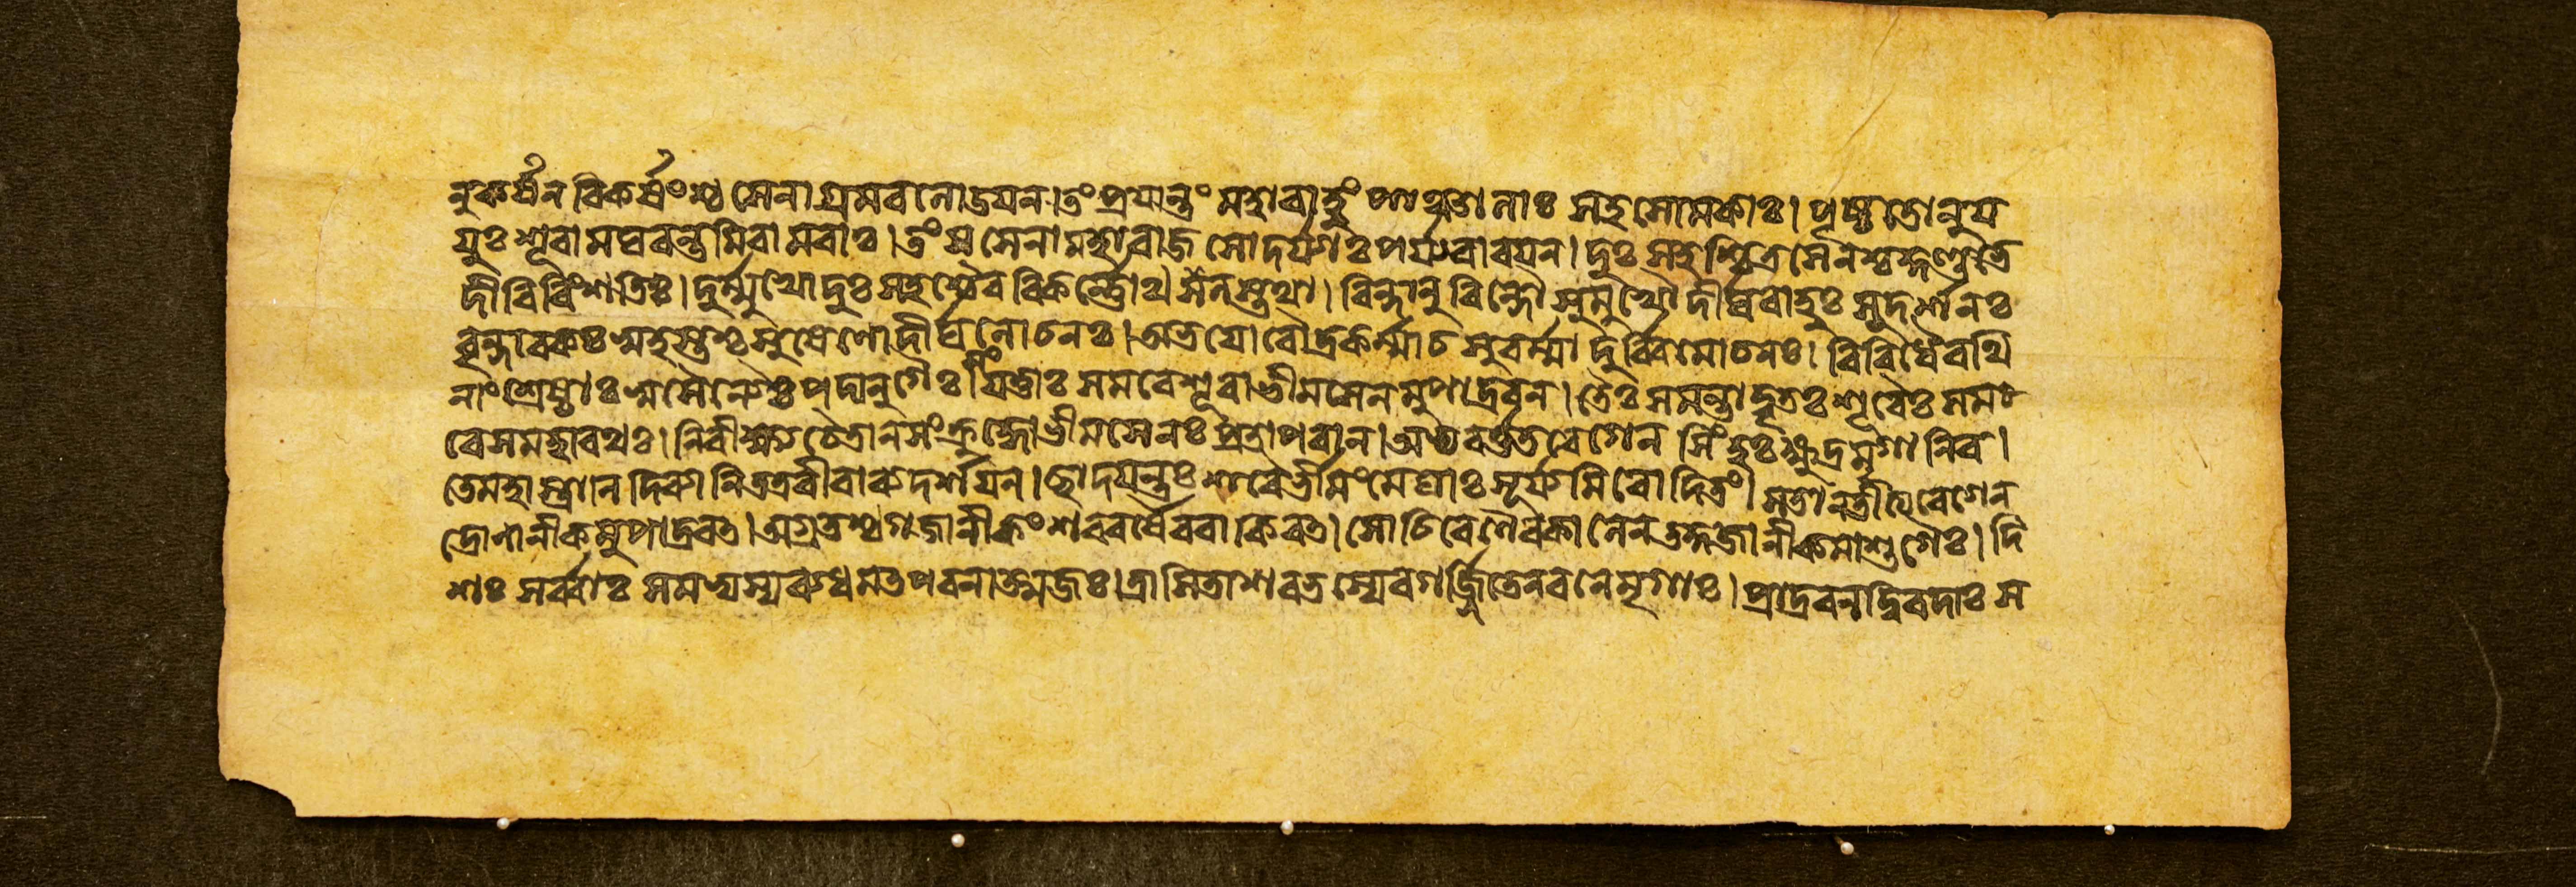 নুকর্ষন বিকর্ষংশ্চ সেনাগ্রমবলোডযন। তং প্রযান্তং মহাবাহুং পাঞ্চালাঃ সহসোমকাঃ। পৃষ্ঠতোনুয
যুঃ শূরামঘবন্তমিবামরাঃ। তং স সেনা মহারাজ সোদর্য্যাঃ পর্য্যবারযন। দুঃসহশ্চিত্রসেনশ্চ কুণ্ডভে
দী বিবিংশতিঃ। দুর্ম্মুখো দুঃসহশ্চৈব বিকর্ণ্ণোথ সলস্তথা। বিন্দানুবিন্দৌ সুমুখো দীর্ঘবাহুঃ সুদর্শনঃ
বৃন্দারকঃ সুহস্তশ্চ সুষেণো দীর্ঘলোচনঃ। অভযো রৌদ্রকর্ম্মাচ সুবর্ম্মা দুর্ব্বিমোচনঃ। বিবিধৈ রথি
নাং শ্রেষ্ঠাঃ সসৈন্যৈশ্চ পদানুগৈঃ। সংযত্তাঃ সমরে শূরা ভীমসেনমুপাদ্রবন। তৈঃ সমন্তাদ্বৃতঃ শূরৈঃ সম
রেস মহারথঃ। নিরীক্ষ্য চৈতান সংক্রুদ্ধো ভীমসেনঃ প্রতাপবান। অভ্যবর্ত্তত বেগেন সিংহঃ ক্ষুদ্রমৃগানিব।
তে মহাস্ত্রান দিব্যানি তত্র বীরাব্যদর্শযন। ছাদযন্তঃ শরৈর্ভীমং মেঘাঃ সূর্য্যমিবোদিতং। স তানতীত্য বেগেন
দ্রোণানীকমুপাদ্রবত। অগ্রতশ্চ গজানীকং শরবর্ষৈরবাকিরত। সোচিরেণৈব কালেন তদ্গজানীকমাশুগৈঃ। দি
শঃ সর্ব্বাঃ সমভ্যস্য ব্যধমত পবনাত্মজঃ। ত্রাসিতা শরভস্যেব গর্জ্জিতেন বনে মৃগাঃ। প্রাদ্রবন দ্বিরদাঃ স